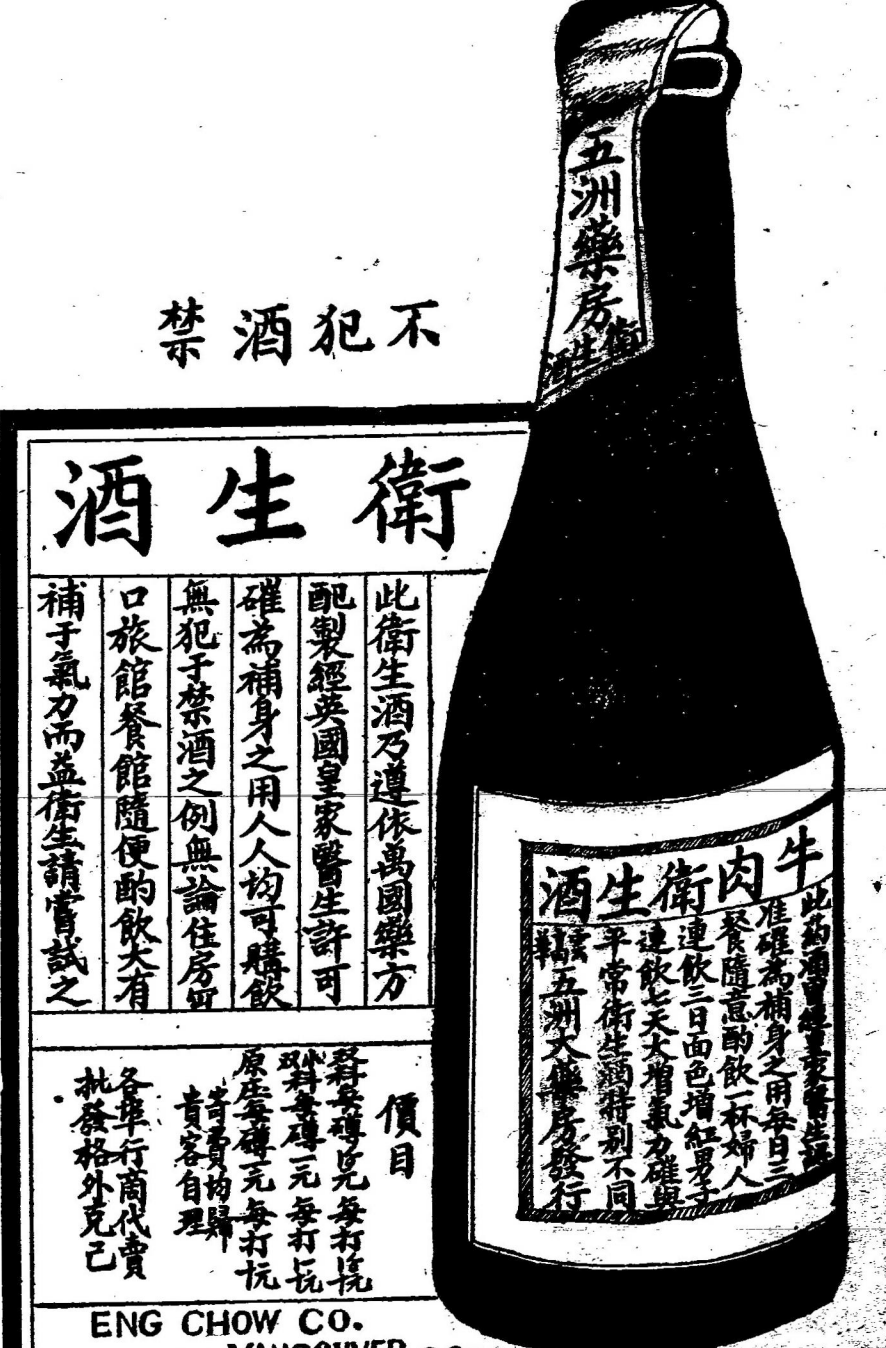 不犯酒禁
衛生酒
此衛生酒乃遵依萬國藥方
配製經英國皇家醫生許可
確為補身之用人人均可購飲
無犯于禁酒之例無論住房
口旅館餐館隨便酌飲大有
補于氣力而益衛生請嘗試之
價目
双料每罇 元 每打 元
料每罇一元 每打 元
原庄每罇一元 每打 元
寄費均歸
貴客自理
各埠行商代賣
批發格外克己
ENG CHOW CO.
VANCOUVER
五洲藥房
衛生酒
牛肉衛生酒
此葯酒曾經皇家醫生
准確為補身之用每日三
餐隨意酌飲一杯婦人
連飲三日面色增紅男子
連飲七天大增氣力確與
平常衛生酒特別不同
五洲大藥房發行